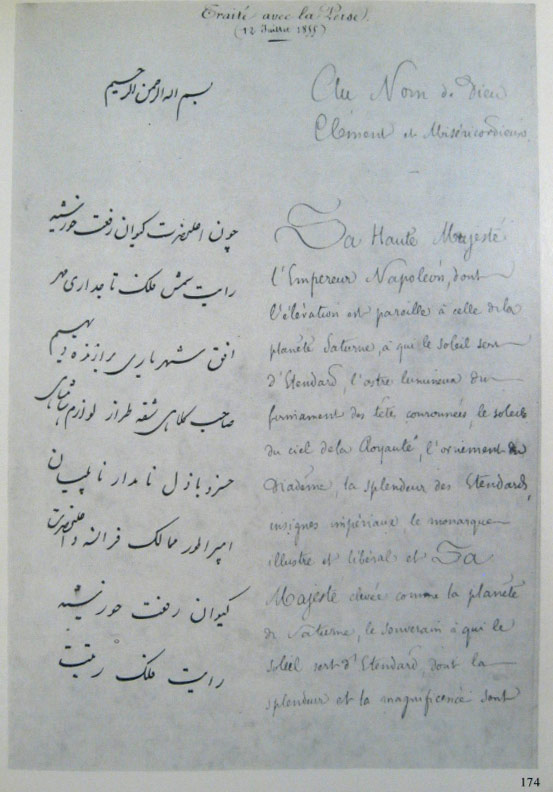 Traité avec la Perse.
(12 Juillet 1855)
بسم الله الرحمن الرحیم
چون اعلیحضرت کیوان رفعت خورشید
رایت شمس فلک تاجداری مهر
افق شهریاری برازنده دیهیم
صاحب کلاهی شقه طراز لوازم شاهی
خسرو باذل نامدار ناپلیان
امپراطور ممالک فرانسه و اعلیحضرت
کیوان رفعت خورشید
رایت فلک رتبت
Au Nom de Dieu
Clément et Miséricordieux
Sa Haute Majesté
l'Empereur Napoléon, dont
l'élévation est pareille à celle de la
planète Saturne, à qui le soleil sert
d'Etendard, l'astre lumineux du
firmament des têtes couronnées, le soleil
du ciel de la Royauté, l'ornement du
Diadème, la splendeur des Etendards,
insignes impériaux le monarque
illustre et libéral et Sa
Majesté élevée comme la planète
de Saturne, le souverain à qui le
soleil sert d'Etendard, dont la
splendeur et la magnificence sont
174